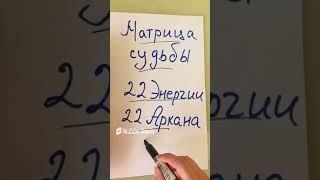 Матрица
судьбы
22 Энергии
22 Аркана